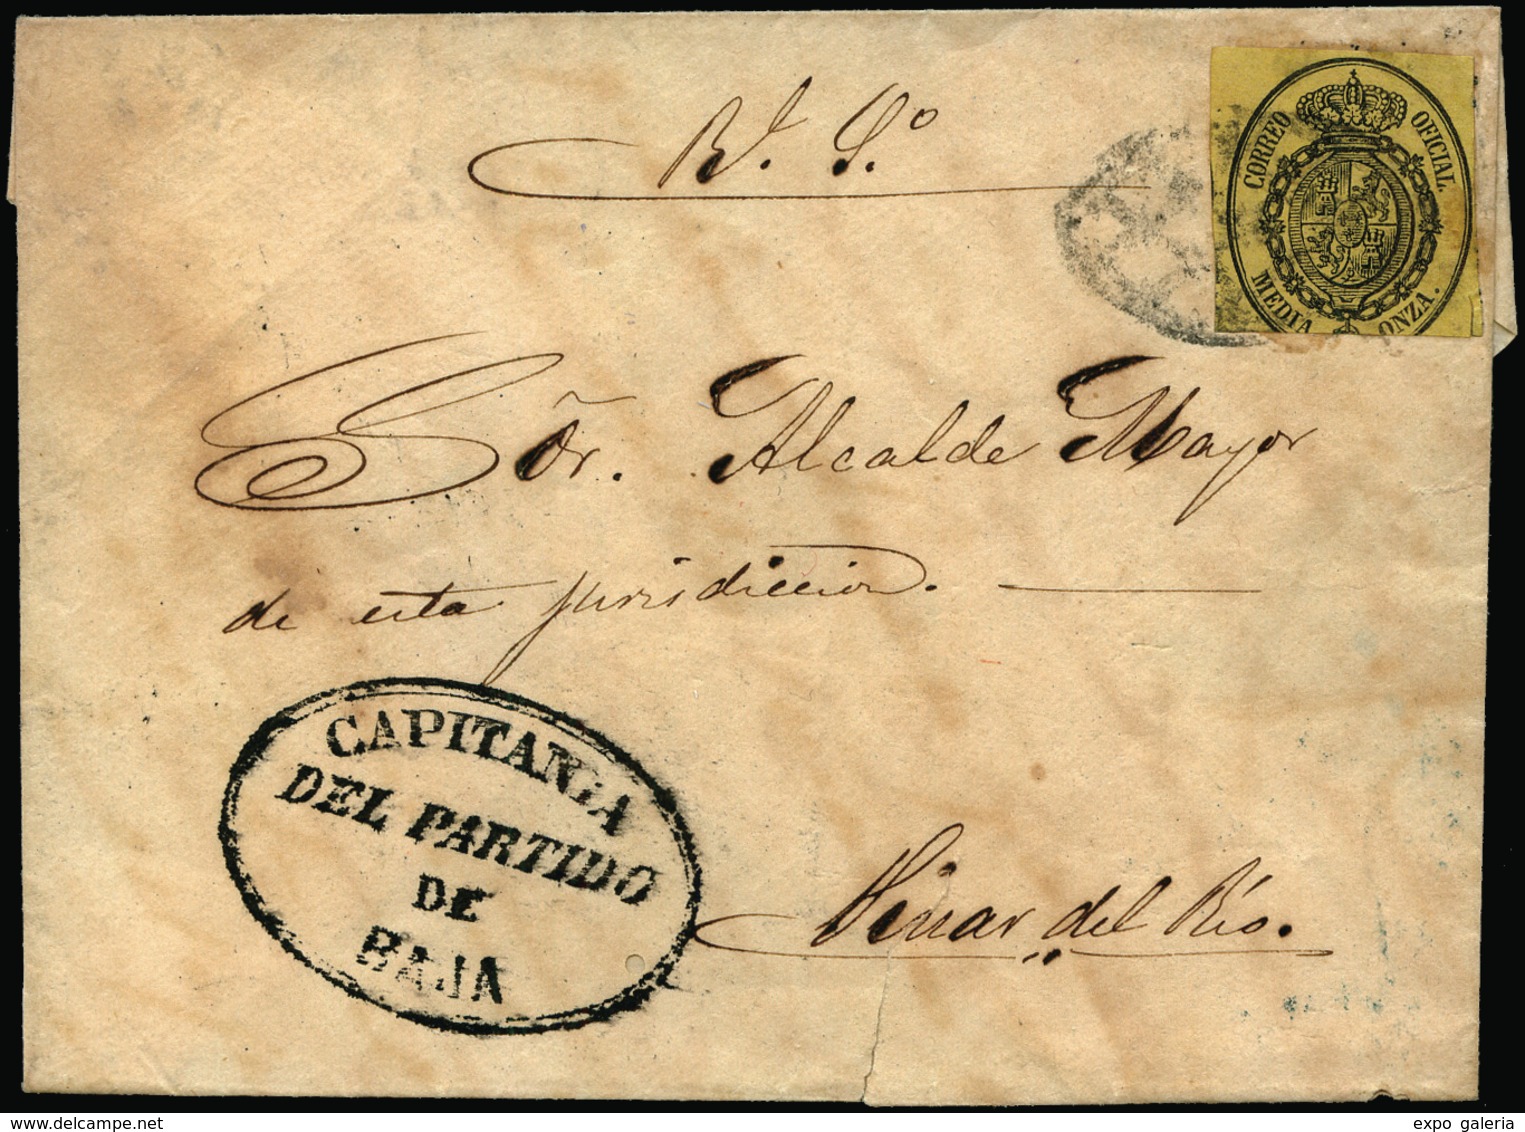 Rl. So.
CORREO OFICIAL
MEDIA ONZA.
Sõr. Alcalde Mayor
de esta jurisdiccion.
CAPITANIA
DEL PARTIDO
DE
BAJA
Pinar del Río.
delcampe.net
expo galeria